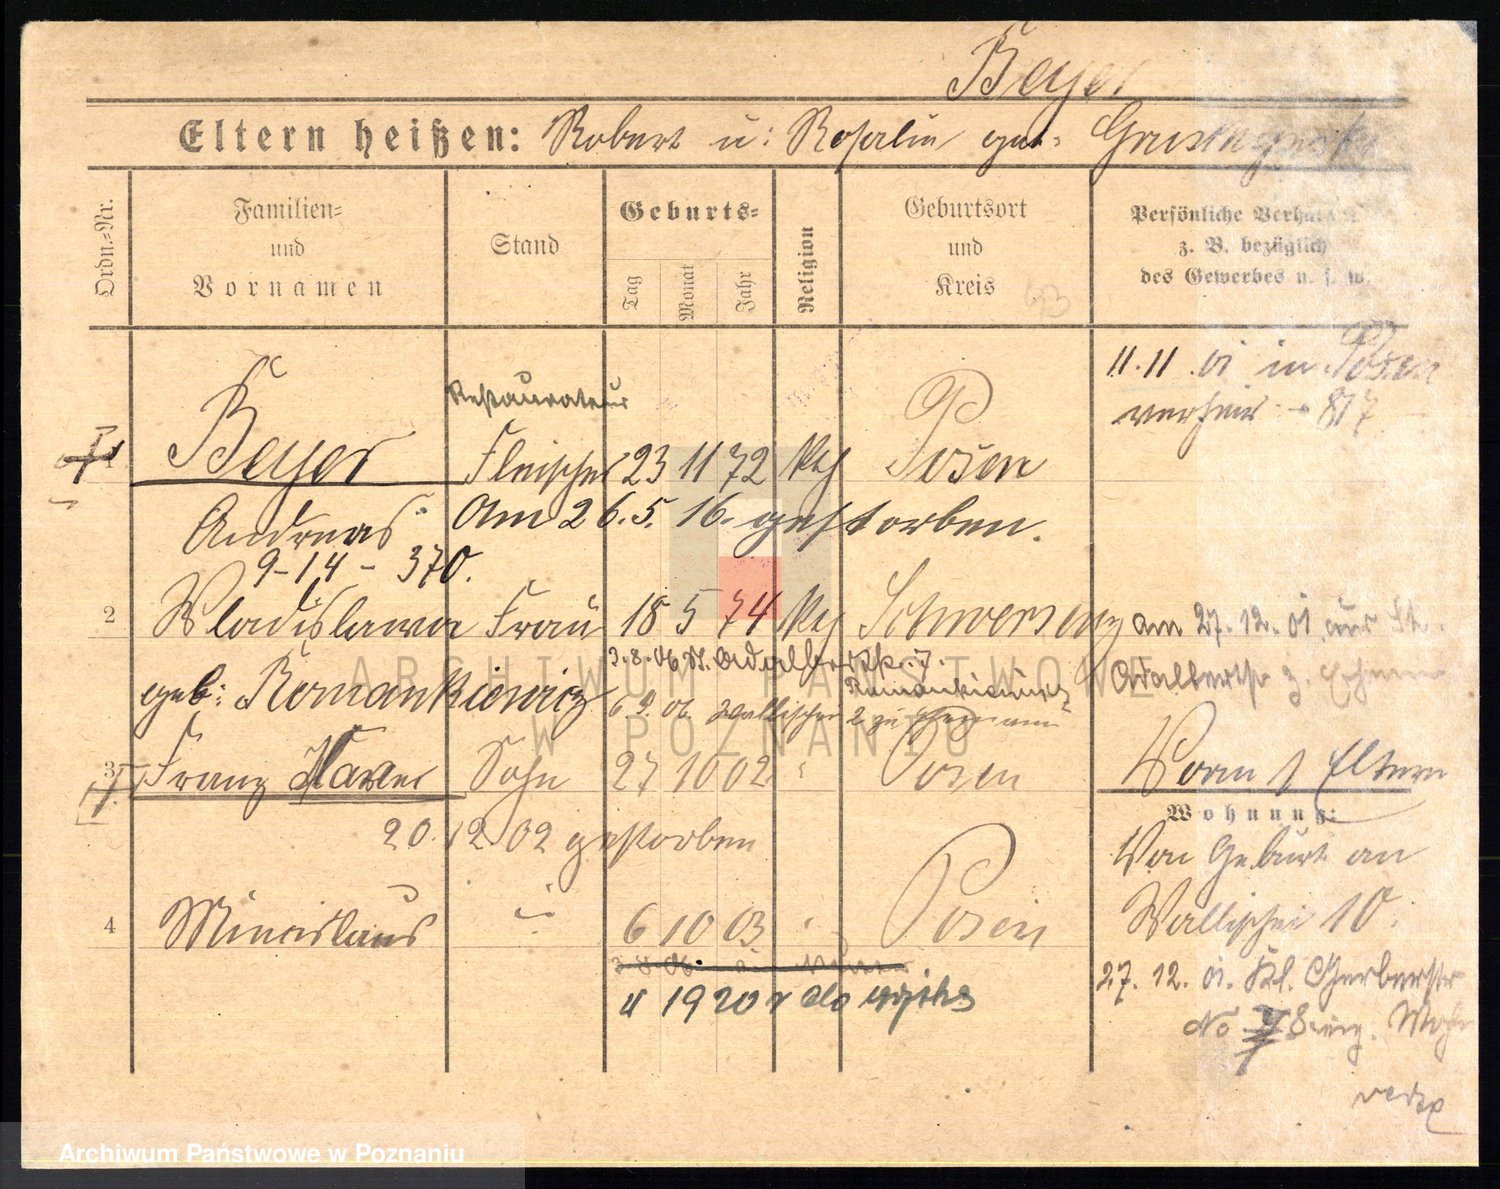 Beyer
Eltern heißen: Robert u: Rosalie geb.
Ordn.-Nr.
Familien- und Vornamen
Stand
Geburts-
Tag
Monat
Jahr
Religion
Geburtsort und Kreis
Persönliche Verhä
z. B. bezüglich
des Gewerbes u. s. w.
11.11.01 in Posen
verheir 817
Restaurateur
1 Beyer Fleischer 23 11 72 kth Posen
Andreas Am 26.5.16. gestorben.
9-14-370.
2 Wladislawa Frau 18 5 74 kth Schwersenz am 27.12.01 aus St.
3.8.06 St. Adalbertstr. 7. Adalbertstr
geb: Romankiewicz 6.9.06 Wallischei 2 zu Romankiewicz
3 Franz Xaver Sohn 27 10 02 Posen Vorm 1 Eltern
Wohnung:
20.12.02 gestorben
Von Geburt an
4 Miecislaus 6 10 03 Posen Wallischei 10.
3.8.06
27.12.01. Kl. Gerberstr
w 1920 r do wojska
No 8 Woh
verte
ARCHIWUM PAŃSTWOWE
W POZNANIU
Archiwum Państwowe w Poznaniu